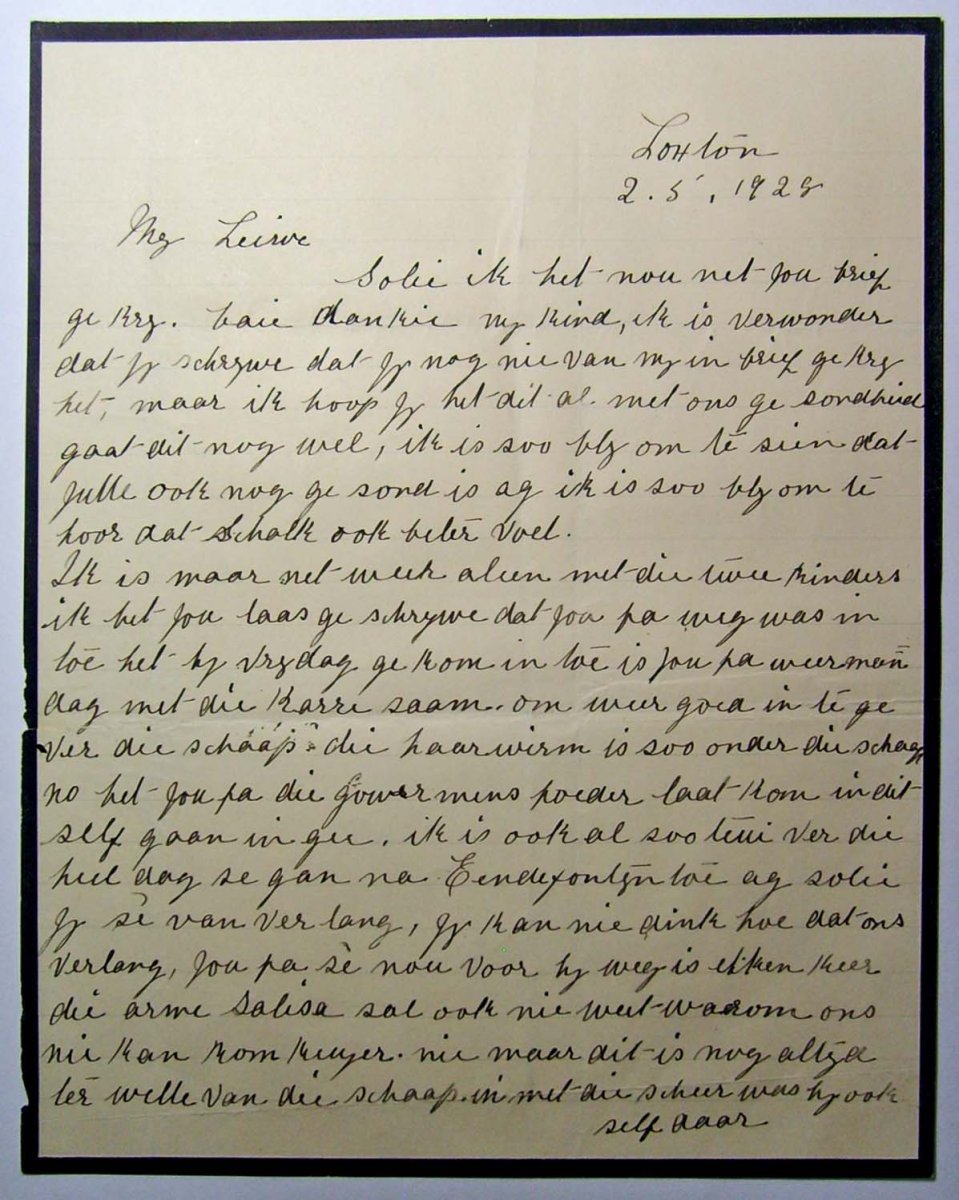 Loxton
2.5.1928
My Leiwe
Solie ik het nou net jou brief
ge kry. baie dankie my kind, ik is verwonder
dat jy schrywe dat jy nog nie van my in brief ge kry
het, maar ik hoop jy het dit al. met ons ge sondheid
gaat dit nog wel, ik is soo bly om te sien dat
julle ook nog ge sond is ag ik is soo bly om te
hoor dat Schalk ook beter voel.
Ik is maar net weer aleen met die twee kinders
ik het jou laas ge schrywe dat jou pa weg was in
toe het hy vrydag ge kom in toe is jou pa weer man
dag met die karre saam. om weer goed in te ge
ver die schaap die haarwirm is soo onder die schaap
no het jou pa die gouwermens poeder laat kom in dit
self gaan in gee. ik is ook al soo teui ver die
heel dag se gan na Eendefontyn toe ag solie
jy sê van verlang, jy kan nie dink hoe dat ons
verlang, jou pa sê nou voor hy weg is elken keer
die arme Salisa sal ook nie weet waarom ons
nie kan kom kuyer. nie maar dit is nog altyd
ter welle van die schaap in met die scheer was hy ook
self daar